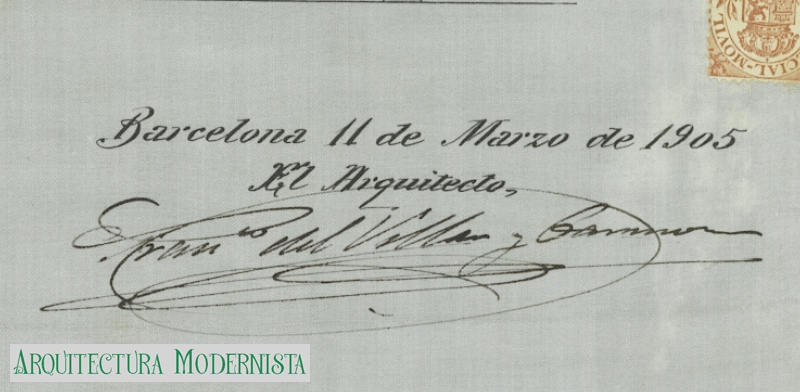 CIAL-MOVIL
Barcelona 11 de Marzo de 1905
El Arquitecto,
Fran.co del Villar y Carmona
ARQUITECTURA MODERNISTA